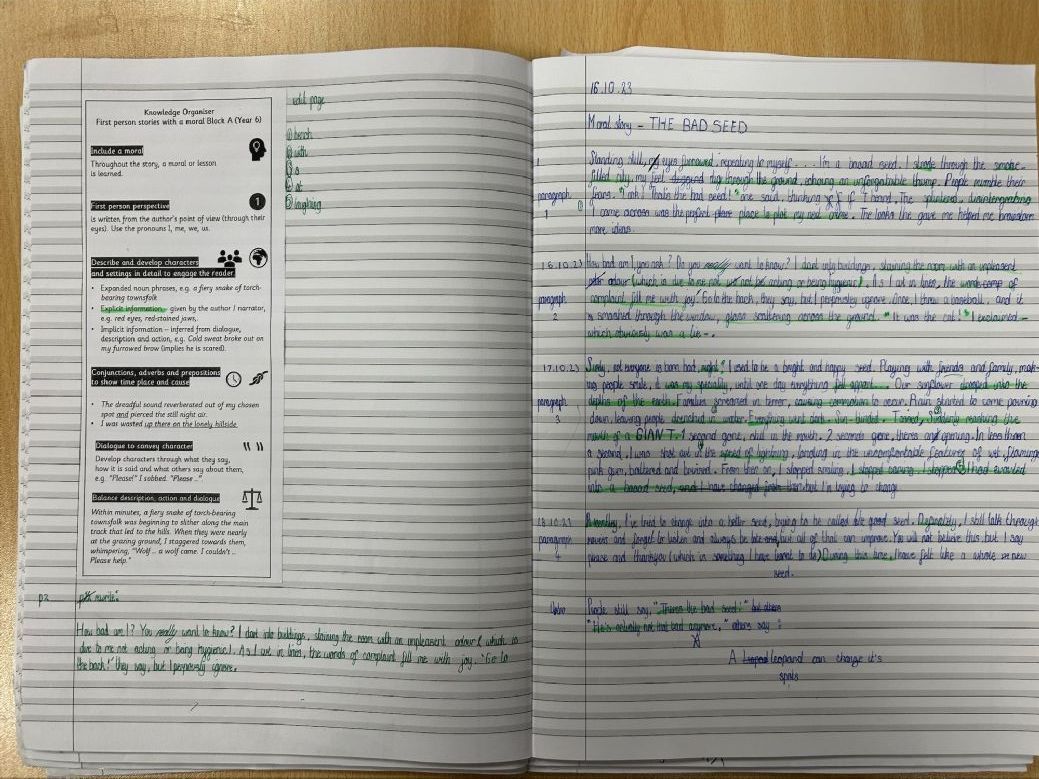 Knowledge Organiser
First person stories with a moral Block A (Year 6)
Include a moral
Throughout the story, a moral or lesson
is learned.
First person perspective
1
Is written from the author's point of view (through their
eyes). Use the pronouns I, me, we, us.
Describe and develop characters
and settings in detail to engage the reader.
• Expanded noun phrases, e.g. a fiery snake of torch-
bearing townsfolk
• Explicit information – given by the author / narrator,
e.g. red eyes, red-stained jaws.
• Implicit information – inferred from dialogue,
description and action, e.g. Cold sweat broke out on
my furrowed brow (implies he is scared).
Conjunctions, adverbs and prepositions
to show time place and cause
• The dreadful sound reverberated out of my chosen
spot and pierced the still night air.
• I was wasted up there on the lonely hillside.
Dialogue to convey character
Develop characters through what they say,
how it is said and what others say about them,
e.g. "Please!" I sobbed. "Please ..".
Balance description, action and dialogue
Within minutes, a fiery snake of torch-bearing
townsfolk was beginning to slither along the main
track that led to the hills. When they were nearly
at the grazing ground, I staggered towards them,
whimpering, "Wolf... a wolf came. I couldn't ..
Please help."
edit page
with
at
laughing
p2 rewrite:
How bad am I? You really want to know? I dart into buildings, staining the room with an unpleasent odour which is
due to me not acting or being hygienic). As I wait in lines, the words of complaint fill me with joy. "Go to
the back!" they say, but I ignore.
16.10.23
Moral story - THE BAD SEED
Standing still, eyes furrowed, repeating to myself.... I'm a broad seed. I through the smoke-
filled city, my feet dug through the ground, echoing an unforgettable thump. People mumble their
fears. "Look! Thats the bad seed!" one said, thinking if I heard. The splintered, disintegrating
paragraph
1
I came across was the perfect place to plot my next crime. The looks they gave me helped me brainstorm
more ideas.
16.10.23 How bad am I you ask? Do you really want to know? I dart into buildings, staining the room with an unpleasent
odour (which is due to me not acting or being hygienic). As I wait in lines, the words of
paragraph complaint fill me with joy. Go to the back, they say, but I ignore. Once, I threw a baseball, and it
2 smashed through the window, glass scattering across the ground. "It was the cat!" I exclaimed -
which obviously was a lie -.
17.10.23 Surely, not everyone is born bad, right? I used to be a bright and happy seed. Playing with friends and family, mak-
ing people smile, it was my specialty, until one day everything fell appart... Our sunflower into the
paragraph depths of the earth. Families screamed in terror, causing commotion to occur. Rain started to come pouring
3 down, leaving people drenched in water. Everything went dark. Suddenly reaching the
mouth of a GIANT. 1 second gone, still in the mouth. 2 seconds gone, theres an opening. In less then
a second, I was shot out at the speed of lightning, landing in the uncomfortable features of wet,
pink gum, battered and bruised. From then on, I stopped smiling, I stopped caring, I stopped. I had
into a broad seed, I have changed but I'm trying to change.
18.10.23 Recently, I've tried to change into a better seed, trying to be called the good seed. I still talk through
paragraph movies and forget to listen and always be late but all of that can improve. You will not believe this but I say
4 please and thankyou (which is something I have learnt to do) During this time, I have felt like a whole new
seed.
People still say, "Theres the bad seed!" but others
"He's actually not that bad anymore," others say
A leopard can change it's
spots